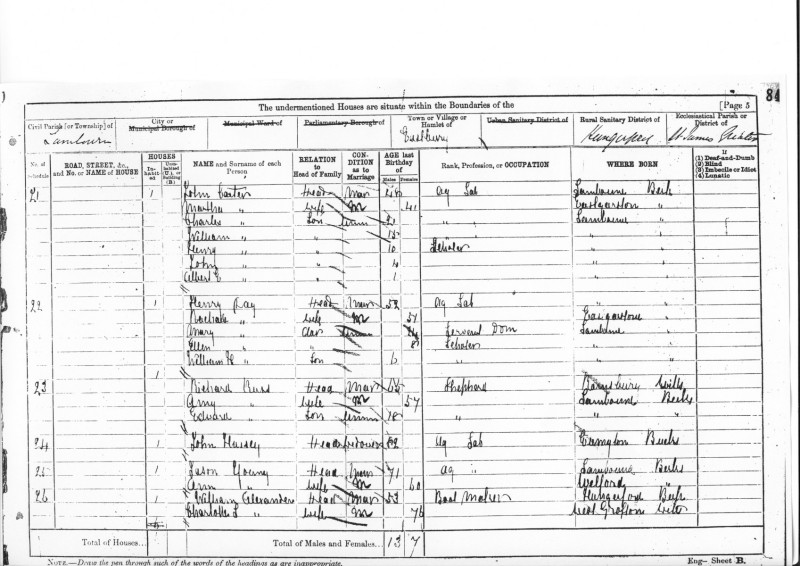 84
The undermentioned Houses are situate within the Boundaries of the
[Page 5
Civil Parish [or Township] of
City or Municipal Borough of
Municipal Ward of
Parliamentary Borough of
Town or Village or Hamlet of
Urban Sanitary District of
Rural Sanitary District of
Ecclesiastical Parish or District of
Eastbury
St James
No. of Schedule
ROAD, STREET, &c., and No. or NAME of HOUSE
HOUSES
Inhabited
Uninhabited (U.), or Building (B.)
NAME and Surname of each Person
RELATION to Head of Family
CONDITION as to Marriage
AGE last Birthday of
Males
Females
Rank, Profession, or OCCUPATION
WHERE BORN
If
(1) Deaf-and-Dumb
(2) Blind
(3) Imbecile or Idiot
(4) Lunatic
21 1 John Carter Head Mar Ag Lab Lambourne Berk
Martha " Wife M 41 Eastgarston "
Charles " Son Unm 21 Lambourne "
William " " " "
Henry " " 10 Scholar " "
John " " 4 " "
Albert E " " 1 " "
22 1 Henry Head Mar 52 Ag Lab " "
" Wife M 51 "
Mary " Daur Unm Servant Dom "
Ellen " " 8 Scholar " "
William H " Son 6 " " "
23 1 Richard Head Mar Shepherd Wilts
Amy " Wife M 57 Lambourne Berks
Edward " Son Unm 18 " " "
24 1 John Hussey Head Widower 62 Ag Lab
25 1 Jason Young Head Mar 71 Ag " Lambourne Berks
Ann " Wife M 60 Welford "
26 1 William Alexander Head Mar 53 Boot Maker Hungerford Berks
Charlotte " Wife M 76 Wilts
Total of Houses...
Total of Males and Females...
13 7
NOTE.—Draw the pen through such of the words of the headings as are inappropriate.
Eng— Sheet B.